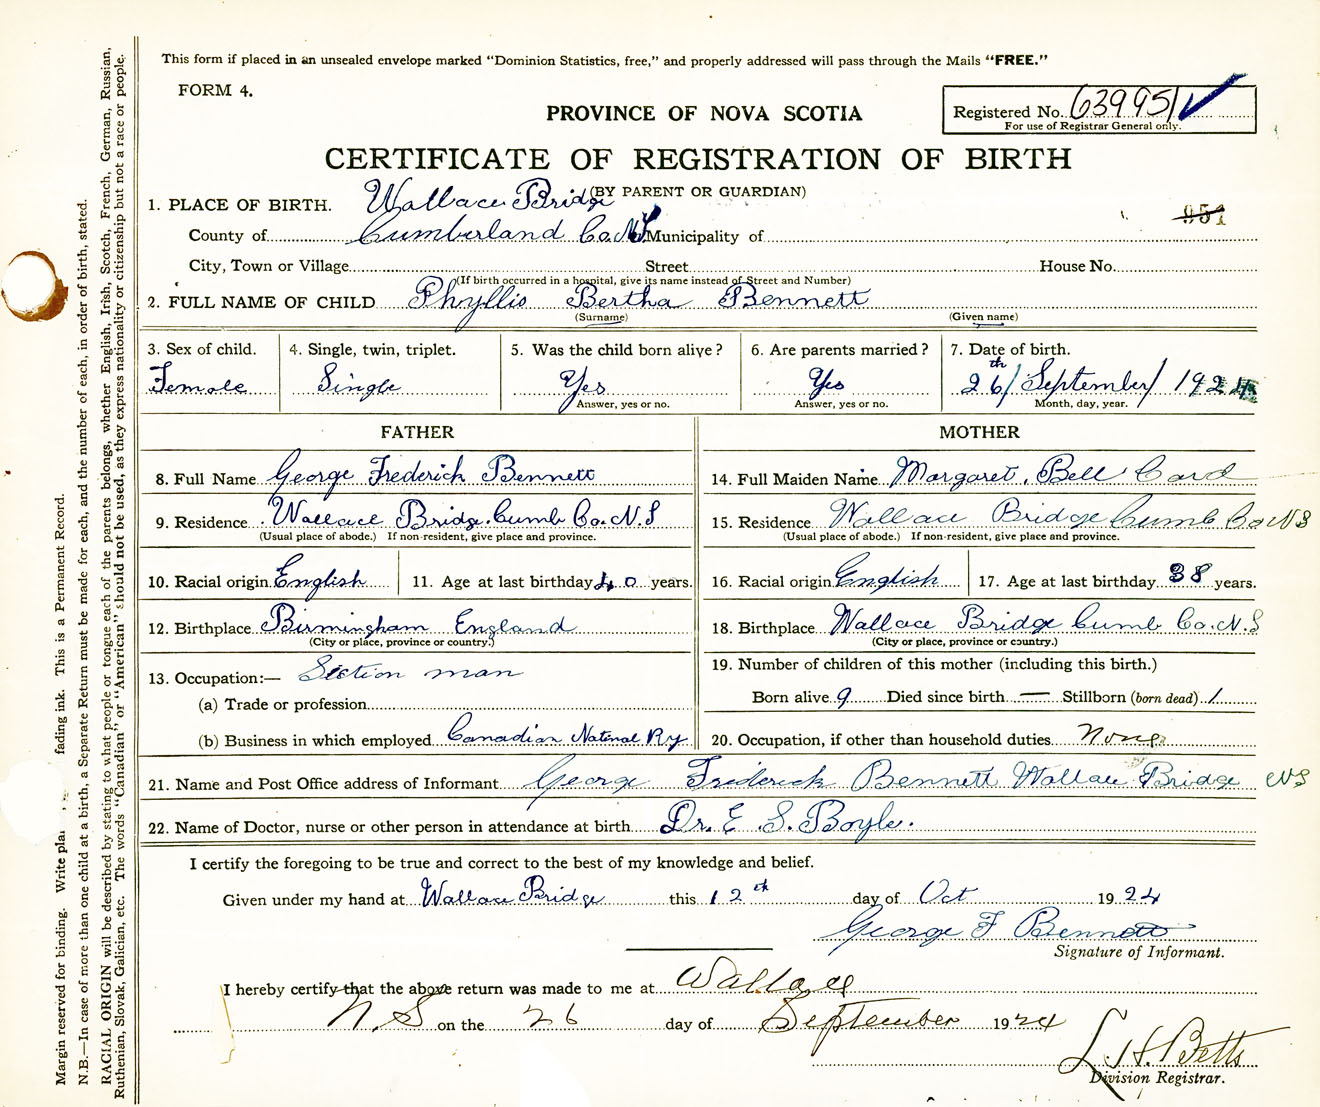 This form if placed in an unsealed envelope marked "Dominion Statistics, free," and properly addressed will pass through the Mails "FREE."
FORM 4.
PROVINCE OF NOVA SCOTIA
Registered No. 63995
For use of Registrar General only.
CERTIFICATE OF REGISTRATION OF BIRTH
(BY PARENT OR GUARDIAN)
1. PLACE OF BIRTH. Wallace Bridge
951
County of Cumberland Co. N.S Municipality of
City, Town or Village Street House No.
(If birth occurred in a hospital, give its name instead of Street and Number)
2. FULL NAME OF CHILD Phyllis Bertha Bennett
(Surname) (Given name)
3. Sex of child. 4. Single, twin, triplet. 5. Was the child born alive? 6. Are parents married? 7. Date of birth.
Female Single Yes Yes 26th/ September/ 1924
Answer, yes or no. Answer, yes or no. Month, day, year.
FATHER MOTHER
8. Full Name George Frederick Bennett 14. Full Maiden Name Margaret Bell Card
9. Residence Wallace Bridge. Cumb Co. N.S 15. Residence Wallace Bridge Cumb Co NS
(Usual place of abode.) If non-resident, give place and province. (Usual place of abode.) If non-resident, give place and province.
10. Racial origin English 11. Age at last birthday 40 years. 16. Racial origin English 17. Age at last birthday 38 years.
12. Birthplace Birmingham England 18. Birthplace Wallace Bridge Cumb Co. N.S
(City or place, province or country.) (City or place, province or country.)
13. Occupation:— Section man 19. Number of children of this mother (including this birth.)
(a) Trade or profession Born alive 9 Died since birth — Stillborn (born dead) 1
(b) Business in which employed Canadian National Ry 20. Occupation, if other than household duties None
21. Name and Post Office address of Informant George Frederick Bennett Wallace Bridge NS
22. Name of Doctor, nurse or other person in attendance at birth Dr. E. S. Boyle.
I certify the foregoing to be true and correct to the best of my knowledge and belief.
Given under my hand at Wallace Bridge this 12th day of Oct 1924
George F Bennett
Signature of Informant.
I hereby certify that the above return was made to me at Wallace
N.S on the 26 day of September 1924
Betts
Division Registrar.
Margin reserved for binding. Write fading ink. This is a Permanent Record.
N.B.—In case of more than one child at a birth, a Separate Return must be made for each, and the number of each, in order of birth, stated.
RACIAL ORIGIN will be described by stating to what people or tongue each of the parents belongs, whether English, Irish, Scotch, French, German, Russian,
Ruthenian, Slovak, Galician, etc. The words "Canadian" or "American" should not be used, as they express nationality or citizenship but not a race or people.